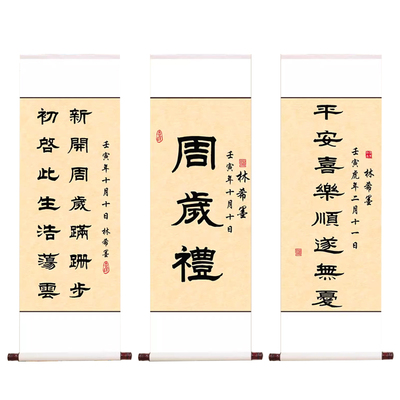 平安喜樂順遂無憂
林希墨
壬寅虎年二月十一日
周歲禮
林希墨
壬寅年十月十日
新開周歲蹣跚步
初啓此生浩蕩雲
壬寅年十月十日 林希墨